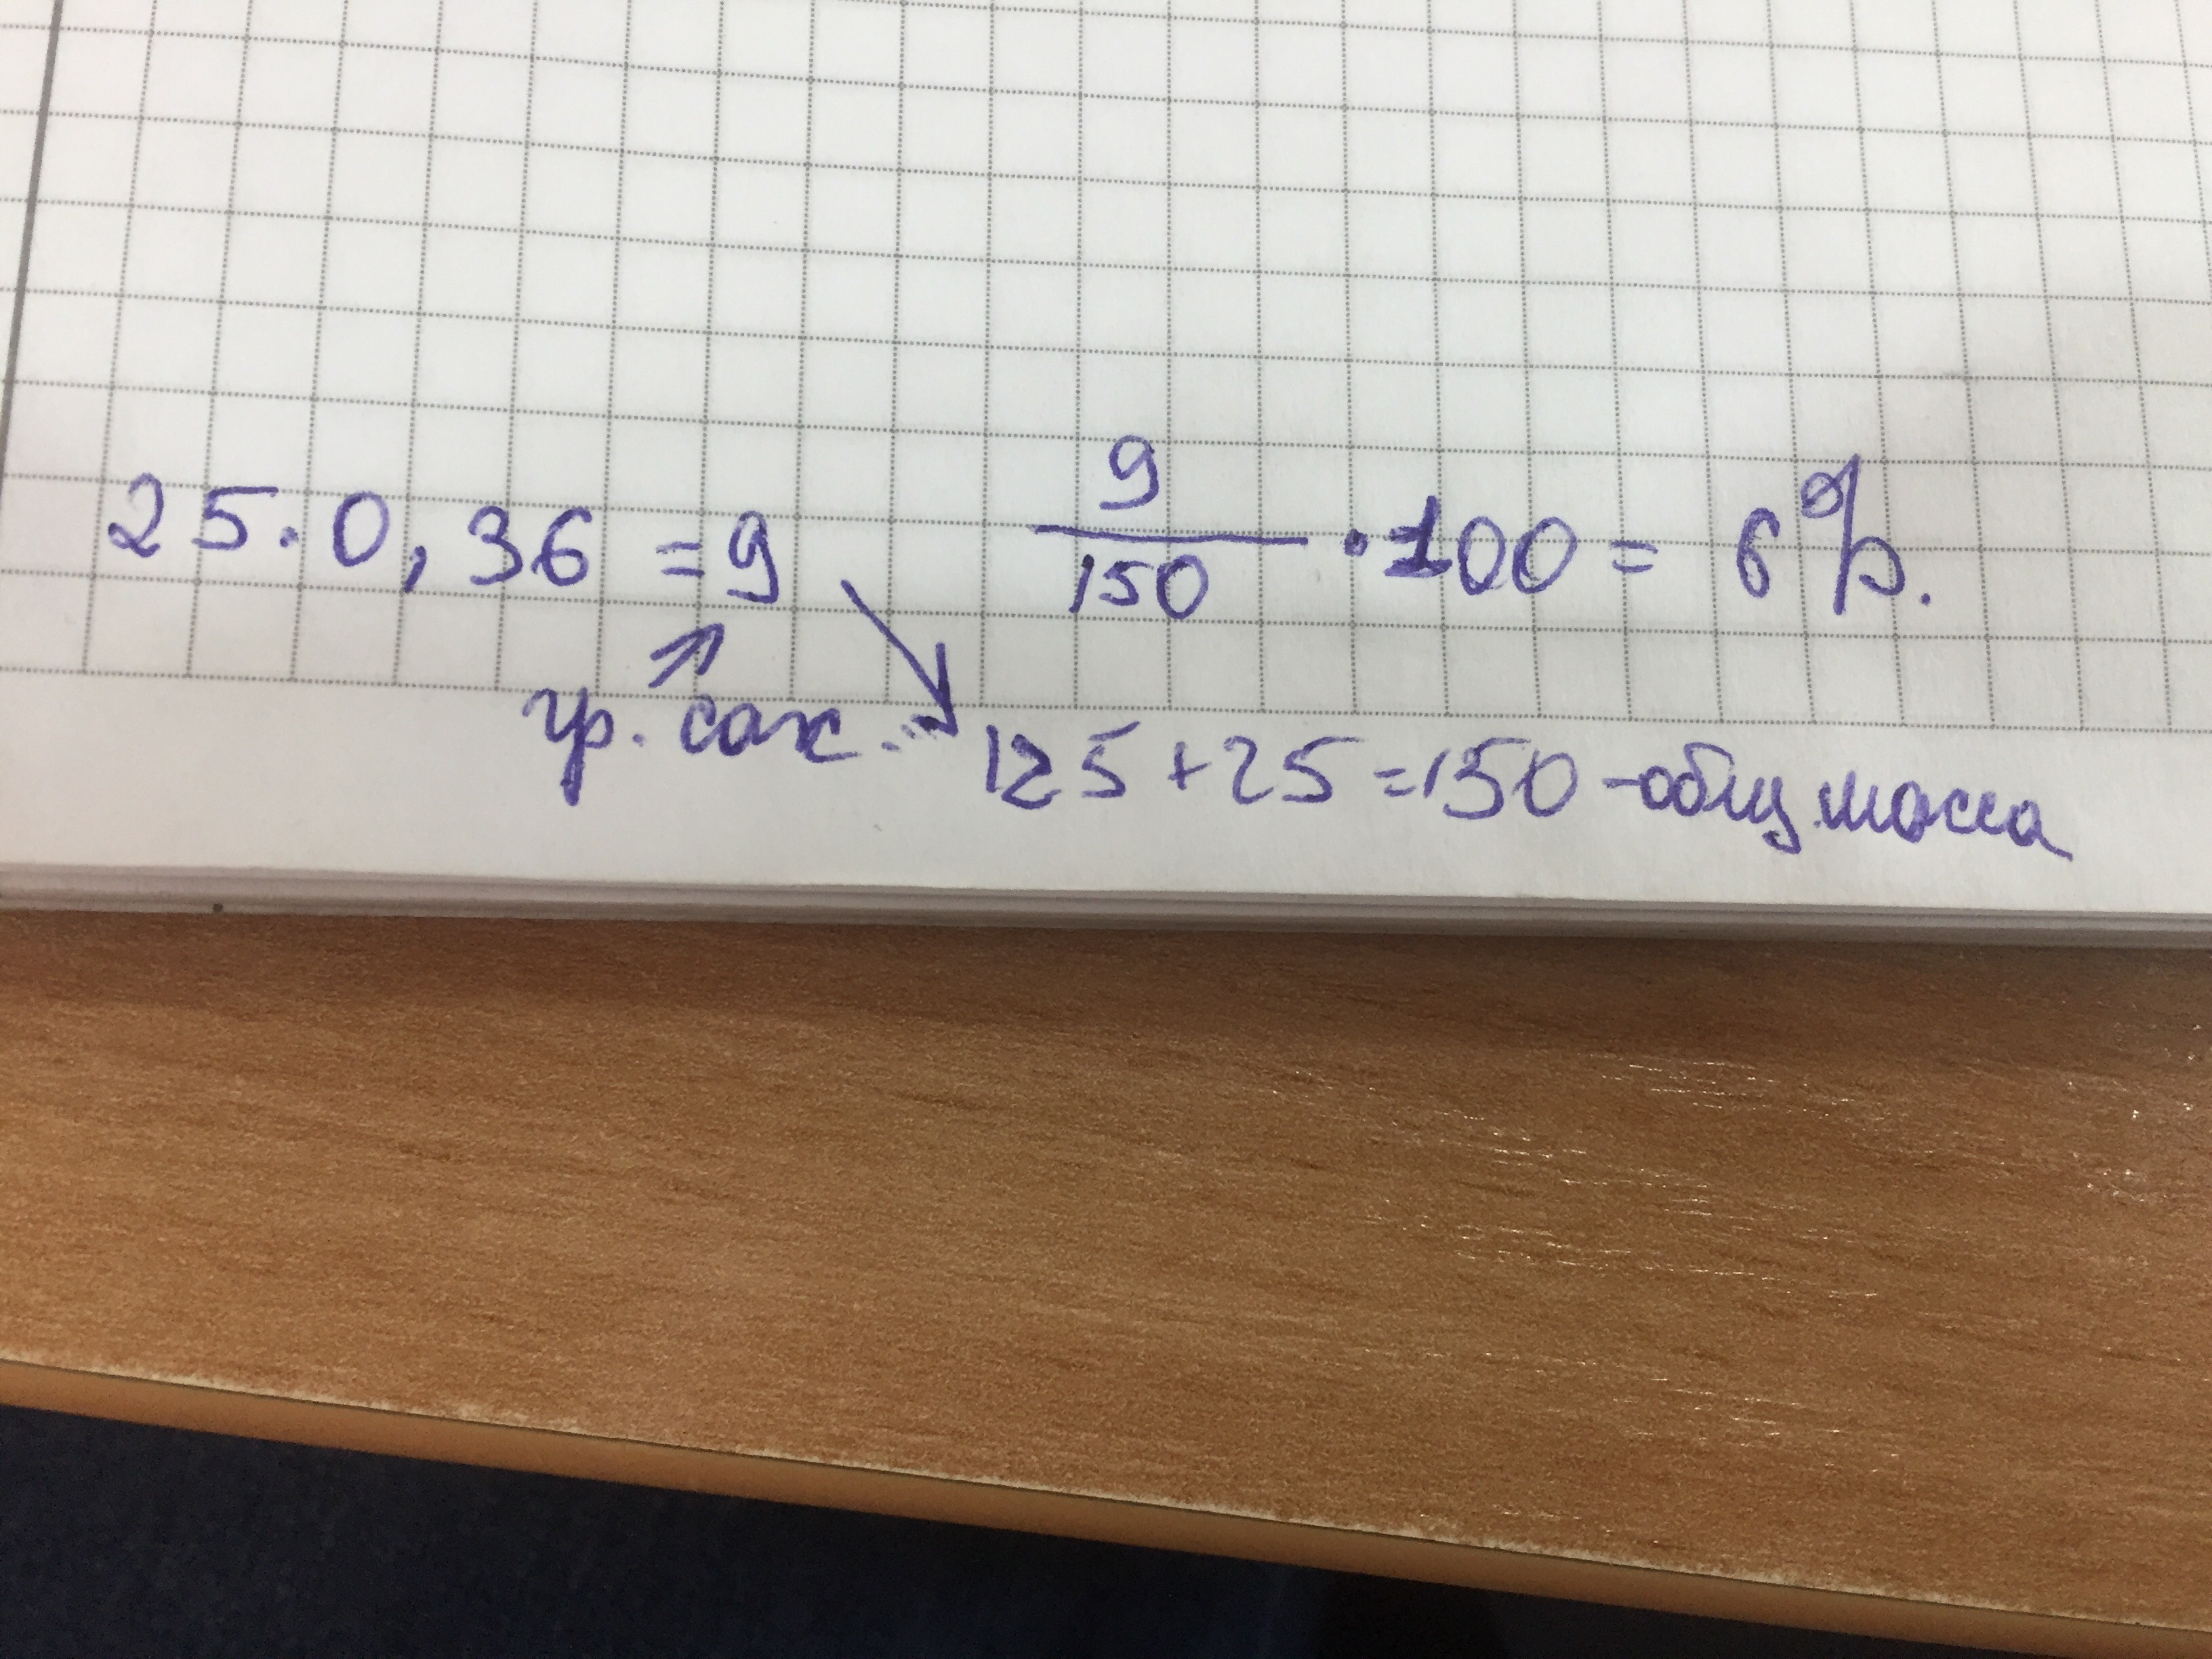 25·0,36=9 9/150 ·100= 6%.
гр. сах. 125+25=150 -общ масса